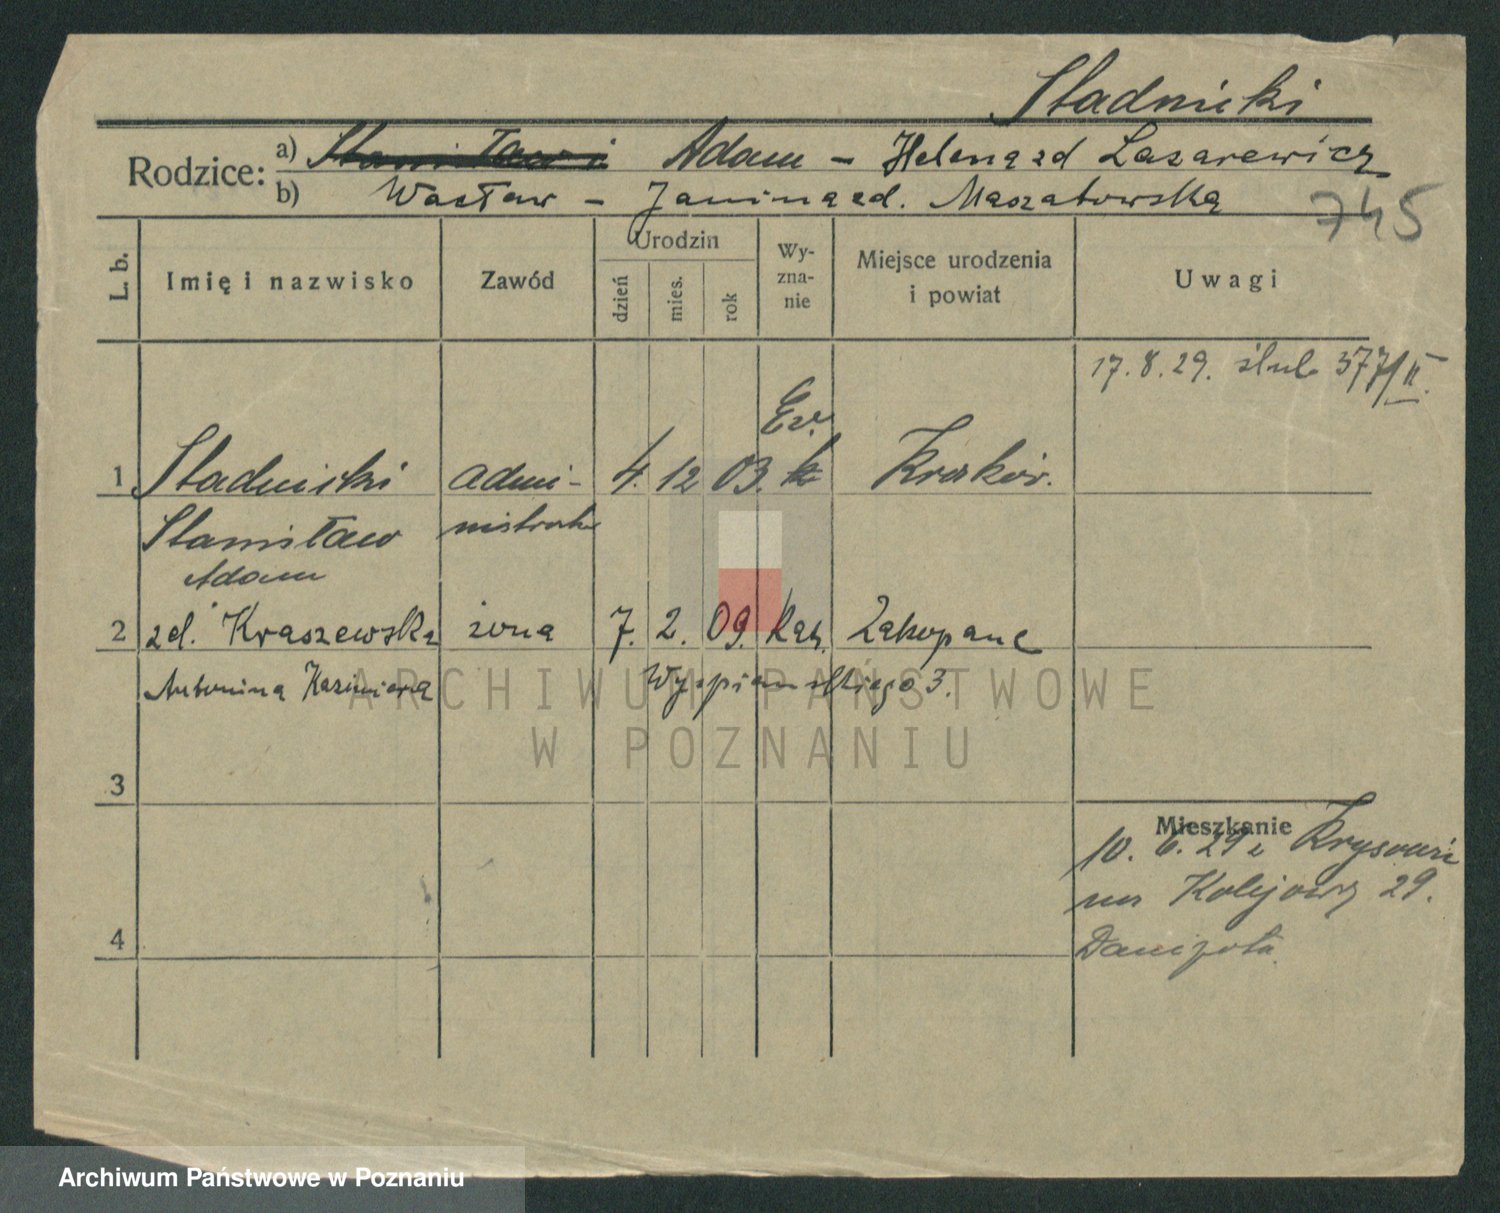 Stadnicki
Rodzice: a) Stanisław i Adam – Helena zd Lazarewicz
b) Wacław – Janina zd. Maszatowska
745
L. b. Imię i nazwisko Zawód Urodzin dzień mies. rok Wy-zna-nie Miejsce urodzenia i powiat Uwagi
17.8.29. ślub 377/II.
Ev.
1 Stadnicki admi- 4. 12 03. k Kraków.
Stanisław nistrator
Adam
2 zd. Kraszewska żona 7. 2. 09. kat. Zakopane
Antonina Kazimiera Wyspiańskiego 3.
3
Mieszkanie
10. 6. 29 z
na Kolejową 29.
4
ARCHIWUM PAŃSTWOWE
W POZNANIU
Archiwum Państwowe w Poznaniu